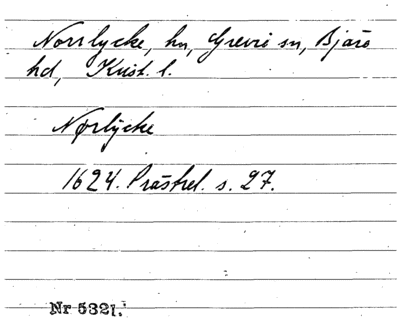 Norrlycke, hn, Grevie sn, Bjäre
hd, Krist. l.
Nørlÿcke
1624. Prästrel. s. 27.
Nr 5321.